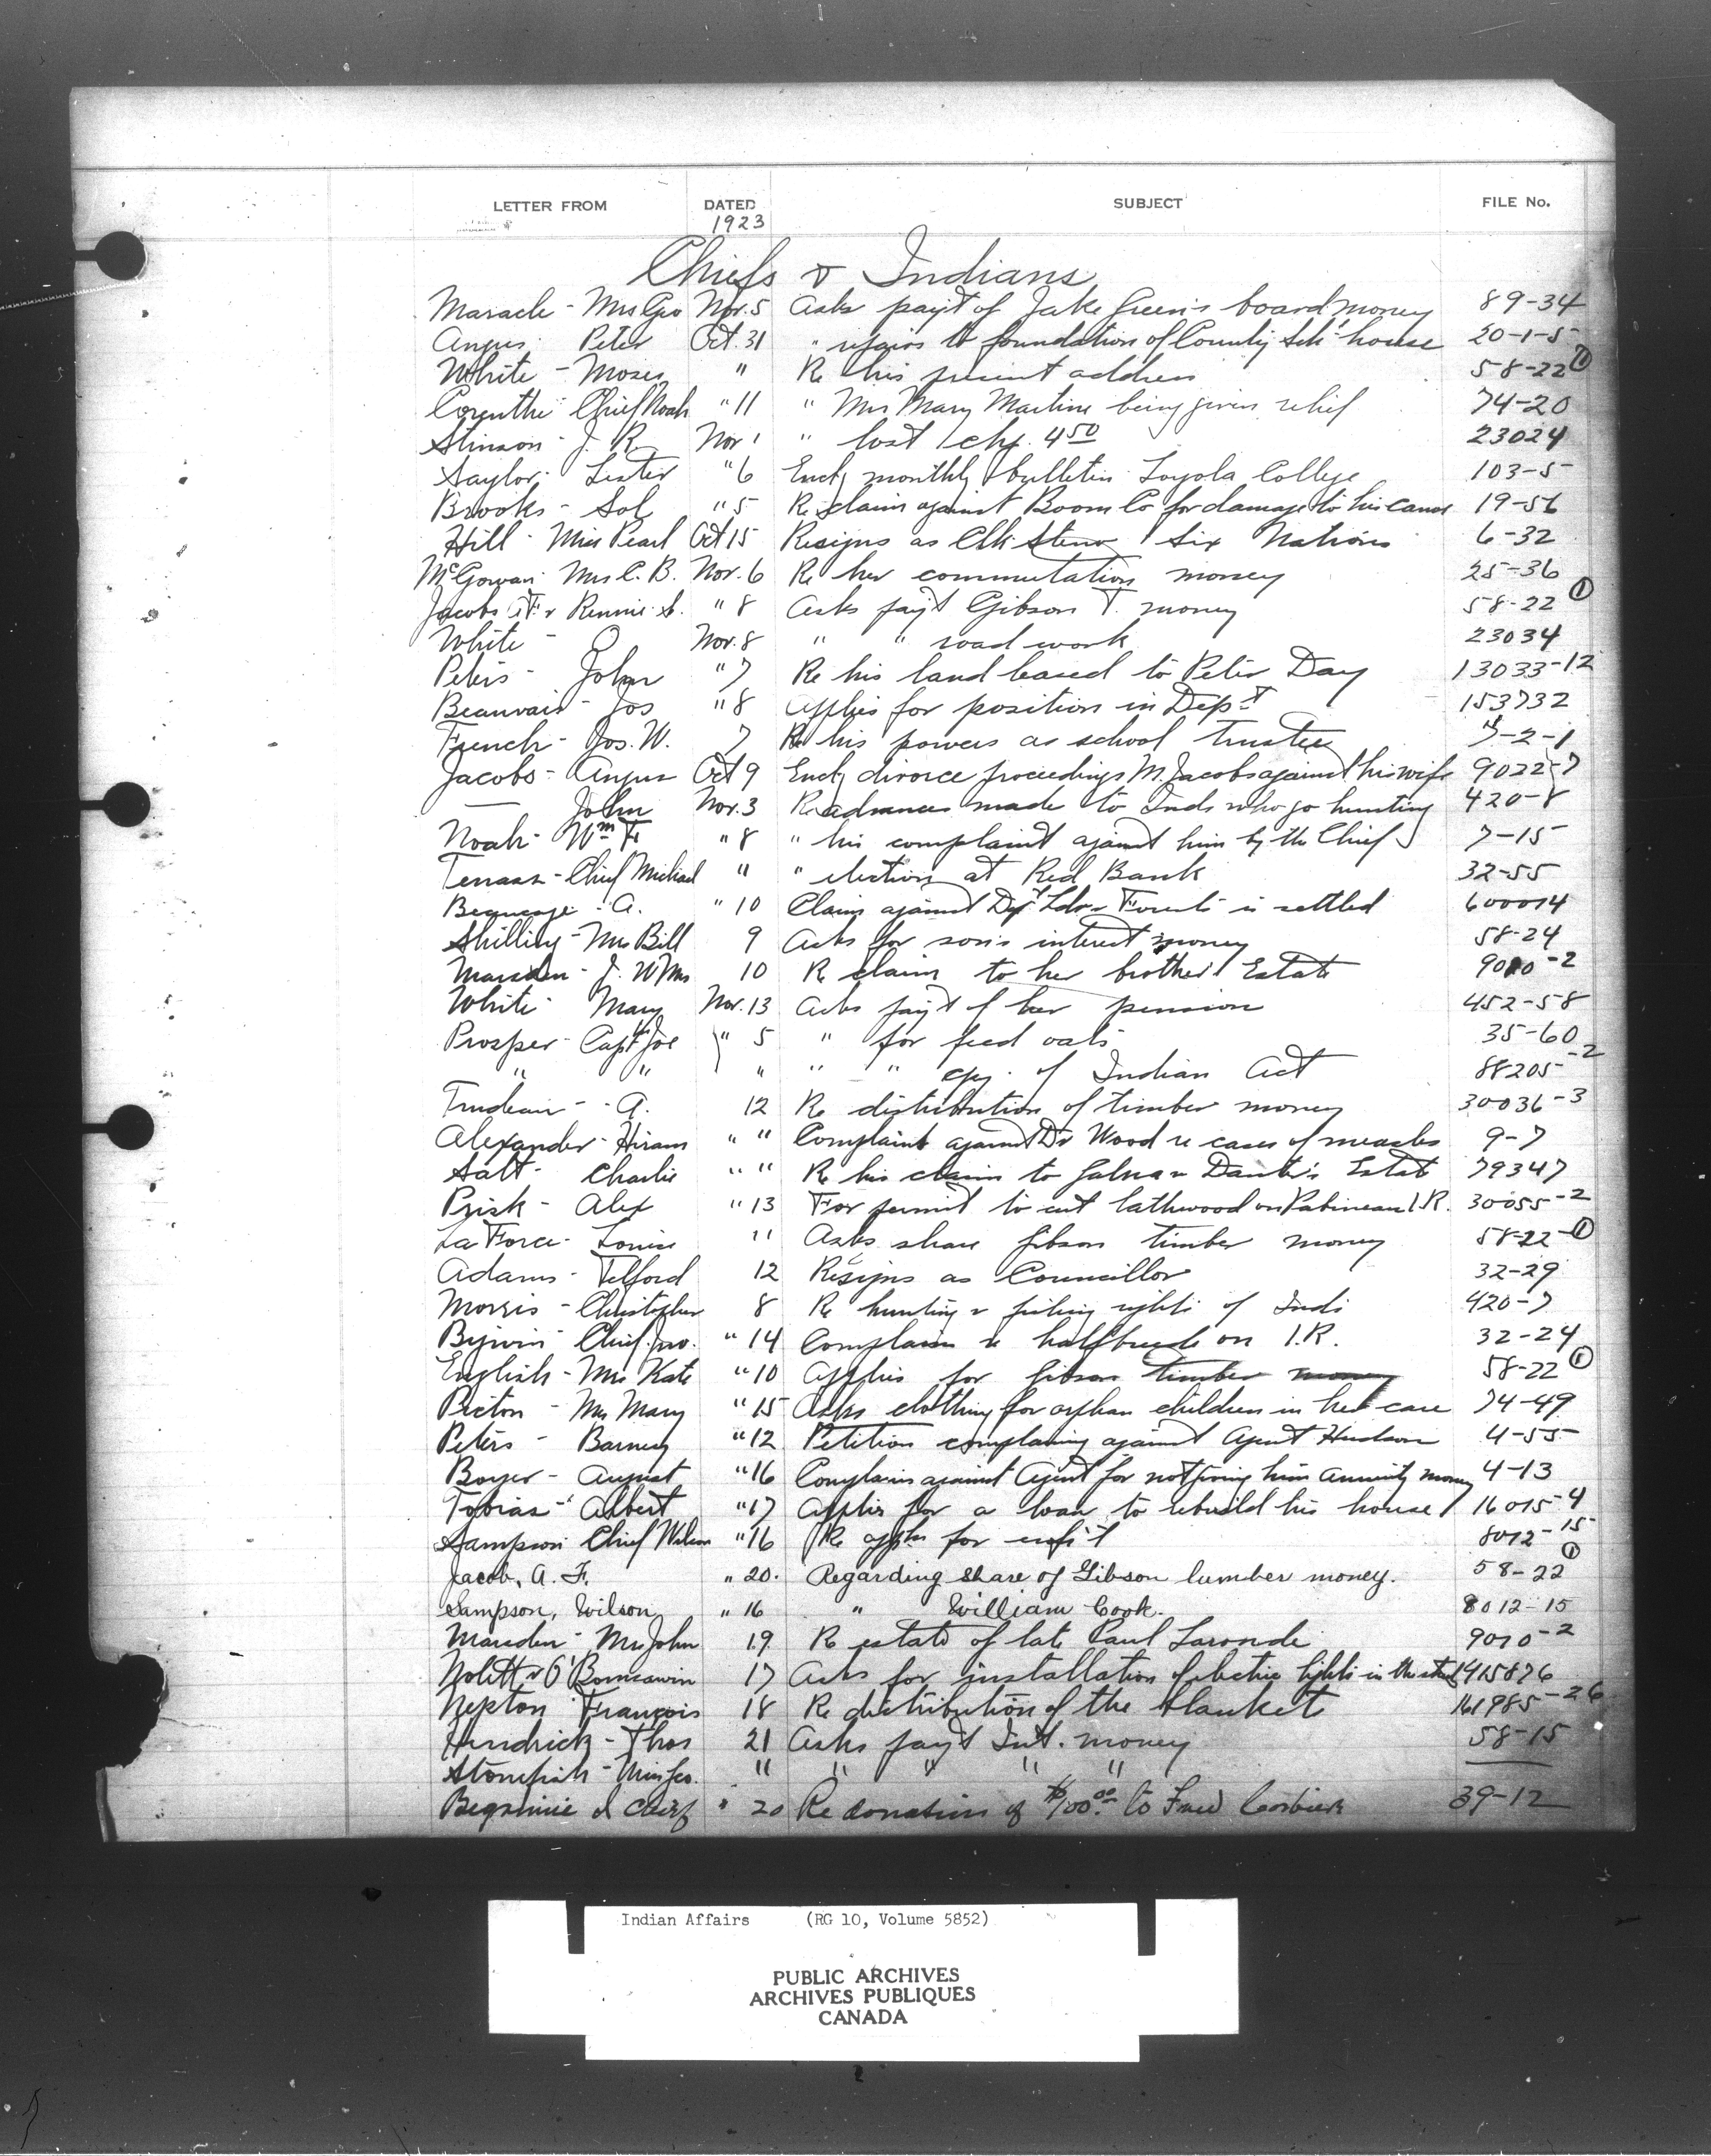 LETTER FROM DATED SUBJECT FILE No.
1923
Chiefs & Indians
Maracle - Mrs Geo Nov. 5 Asks pay't of Jake Green's board money 89-34
Angus Peter Oct. 31 " repairs to foundation of County Sch. house 20-1-5
White - Moses " Re his present address 58-22 ①
Corinthe Chief Noah " 11 " Mrs Mary Martine being given relief 74-20
Stinson - J. R. Nov 1 " lost chq. 4 50 23024
Saylor - Lister " 6 Encl'g monthly bulletin Loyola College 103-5
Brooks - Sol " 5 Re claim against Boom Co for damage to his canoe 19-56
Hill - Miss Pearl Oct 15 Resigns as Clk Steno Six Nations 6-32
McGowan Mrs C. B. Nov. 6 Re her commutation money 25-36
Jacobs A F & Rennie S. " 8 Asks pay't Gibson T. money 58-22 ①
White - O Nov. 8 " " road work 23034
Peters - John " 7 Re his land leased to Peter Day 13033-12
Beauvais - Jos " 8 Applies for position in Dept 153732
French - Jos. W. 7 Re his powers as school trustee 7-2-1
Jacobs - Angus Oct 9 Encl'g divorce proceedings M. Jacobs against his wife 9022-7
— John Nov. 3 Re advances made to Inds who go hunting 420-8
Noah - Wm F " 8 " his complaint against him by the Chief 7-15
Tenass - Chief Michael " " election at Red Bank 32-55
Beaucage - A. " 10 Claim against Dep't Lds & Forests is settled 600014
Shilling - Mrs Bill 9 Asks for son's interest money 58-24
Marsden - J. W Mrs 10 Re claim to her brother's Estate 9010-2
White - Mary Nov. 13 Asks pay't of her pension 452-58
Prosper - Capt Joe " 5 " for feed oats 35-60
" " " " " cpy. of Indian Act 88205-2
Trudeau - A. 12 Re distribution of timber money 30036-3
Alexander - Hiram " " Complaint against Dr Wood re cases of measles 9-7
Salt - Charlie " " Re his claim to Estate 79347
Prisk - Alex " 13 For permit to cut lathwood on Pabineau I.R. 30055-2
La Force - Louise 11 Asks share Gibson timber money 58-22-①
Adams - Telford 12 Resigns as Councillor 32-29
Morris - Christopher 8 Re hunting & fishing rights of Inds 420-7
Chief Jno. " 14 Complains re halfbreeds on I.R. 32-24
English - Mrs Kate " 10 Applies for Gibson timber money 58-22 ①
Picton - Mrs Mary " 15 Asks clothing for orphan children in her care 74-49
Peters - Barney " 12 Petition complaining against Agent Hudson 4-55
Boyer - August " 16 Complains against Agent for not giving him annuity money 4-13
Tobias - Albert " 17 Applies for a loan to rebuild his house 16015-4
Sampson Chief Wilson " 16 Re appln for enfr't 8012-15
Jacob, A. F. " 20. Regarding share of Gibson lumber money. 58-22 ①
Sampson, Wilson " 16 " William Cook. 8012-15
Marsden - Mrs John 19 Re estate of late Paul Laronde 9010-2
Nolett & O'Bomsawin 17 Asks for installation of electric lights in the 1415876
Nepton François 18 Re distribution of the blanket 161985-26
Hendrick - Thos 21 Asks pay't Int. money 58-15
Stonefish - " " " " "
chief " 20 Re donation of $100.00 to Fred Corbiere 39-12
Indian Affairs (RG 10, Volume 5852)
PUBLIC ARCHIVES
ARCHIVES PUBLIQUES
CANADA